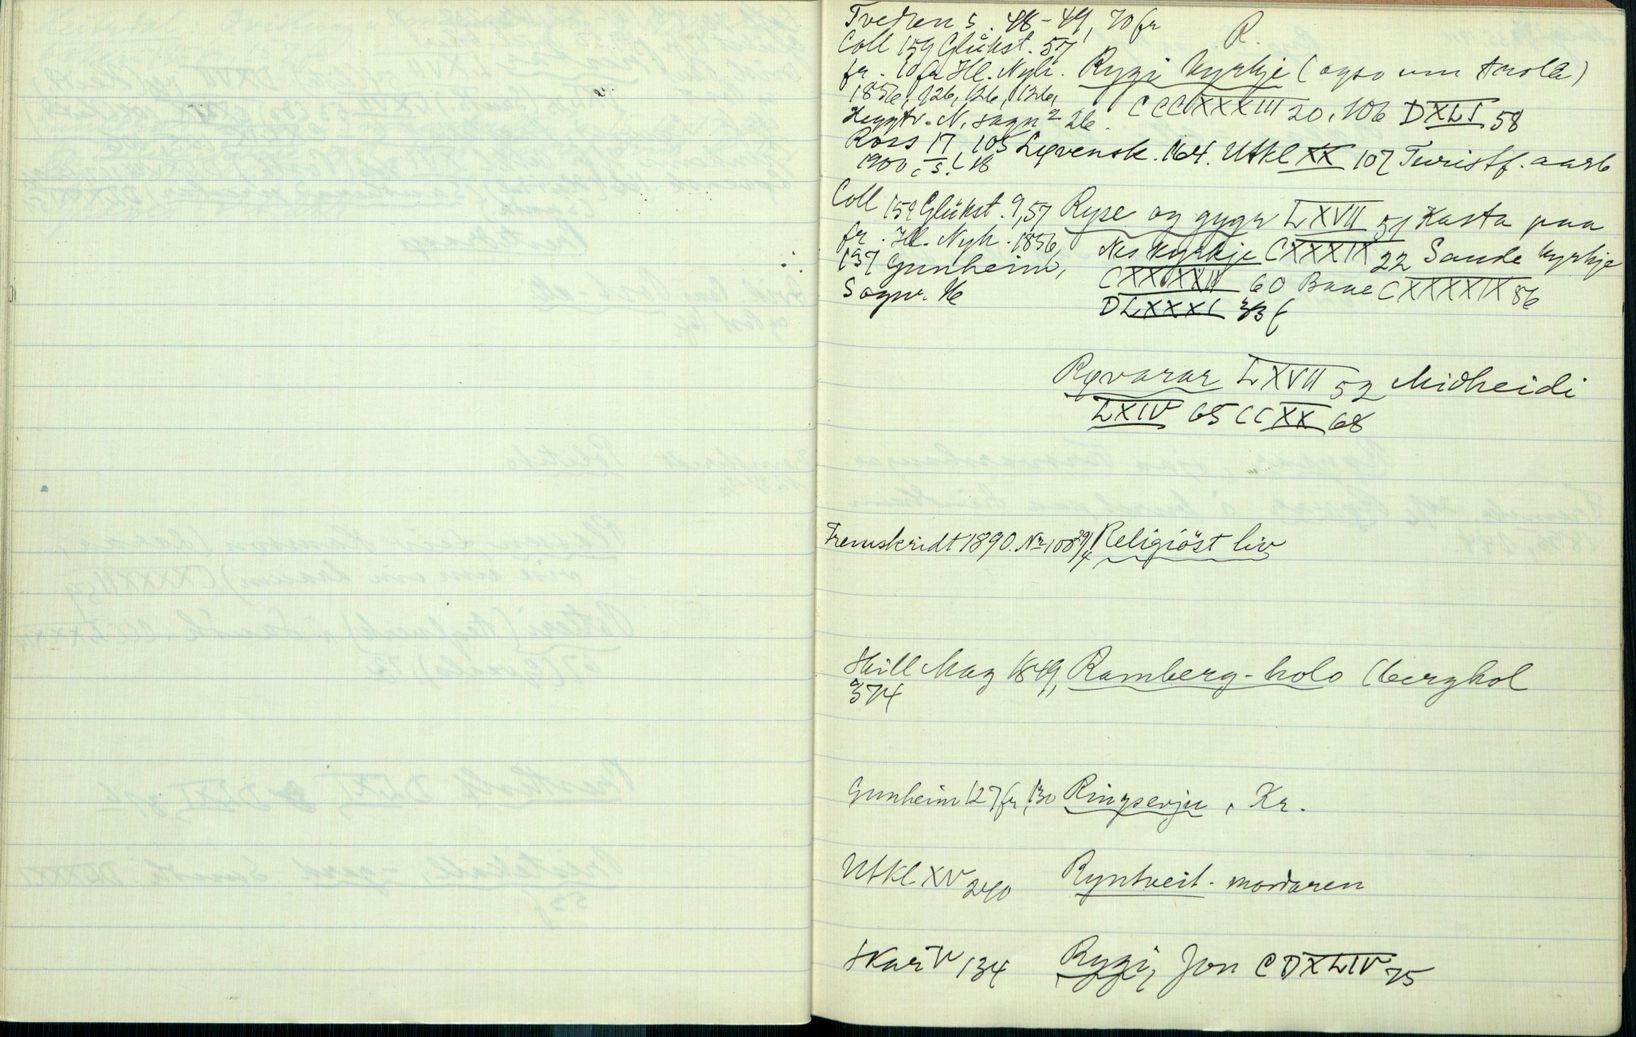 R.
Tvedten s. 48-49, 70 fr
Coll 159 Glükst. 57
fr. Ill. Nyh. Rygi kyrkje (ogso um
1856, 126, CCCXXXIII 20, 106 DXLI 58
N. sagn 2 26.
Ross 17, 105 Løvensk. 164. Utkl XX 107 Turistf. aarb
1900, s. 18
Coll 159 Glükst. 9,57 Ryse og gygr LXVII 51 Kasta paa
fr. Ill. Nyh. 1856, Nes kyrkje CXXXIX 22 Sande kyrkje
137 Gunheim, 60 Bane CXXXXIX 86
Sogur. 16 DLXXXI 33 f
Røvarar LXVII 52 Midheidi
LXIV 65 CCXX 68
Fremskridt 1890. Nr 108 Religiöst liv
Skill Mag 1849, Ramberg-holo (berghol
374
Gunheim 127 fr, 130 Ringserju, Kr.
Utkl XV 240 Ryntveit-mordaren
Skar IV 134 Rygi, Jon CDXLIV 75